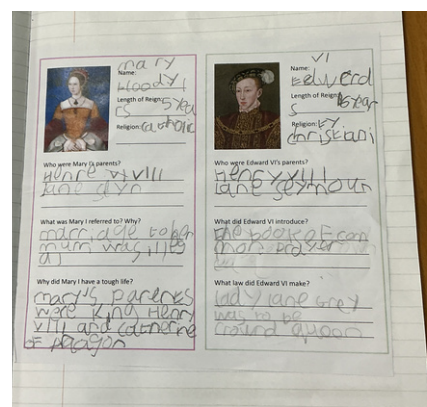 mary
Name:
bloody I
Length of Reign: 5 yea
rs
Religion: catholic
Who were Mary I's parents?
Henre VIII
jane
What was Mary I referred to? Why?
marriage to her
mum was illeg
al
Why did Mary I have a tough life?
mary's parents
were King Henry
VIII and catherine
of Aragon
VI
Name:
Edwerd
Length of Reign: 6 year
s
Religion:
christiani
ty
Who were Edward VI's parents?
Henry VIII
jane seymour
What did Edward VI introduce?
the book of com
mon prayer
What law did Edward VI make?
lady jane Grey
was to be
cround queen